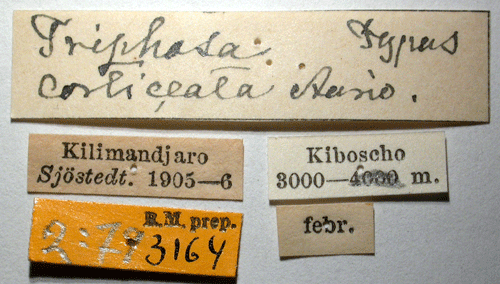 Triphosa Typus
corticeata Auriv.
Kilimandjaro
Sjöstedt. 1905—6
Kiboscho
3000—4000 m.
febr.
R.M. prep.
2:79 3164